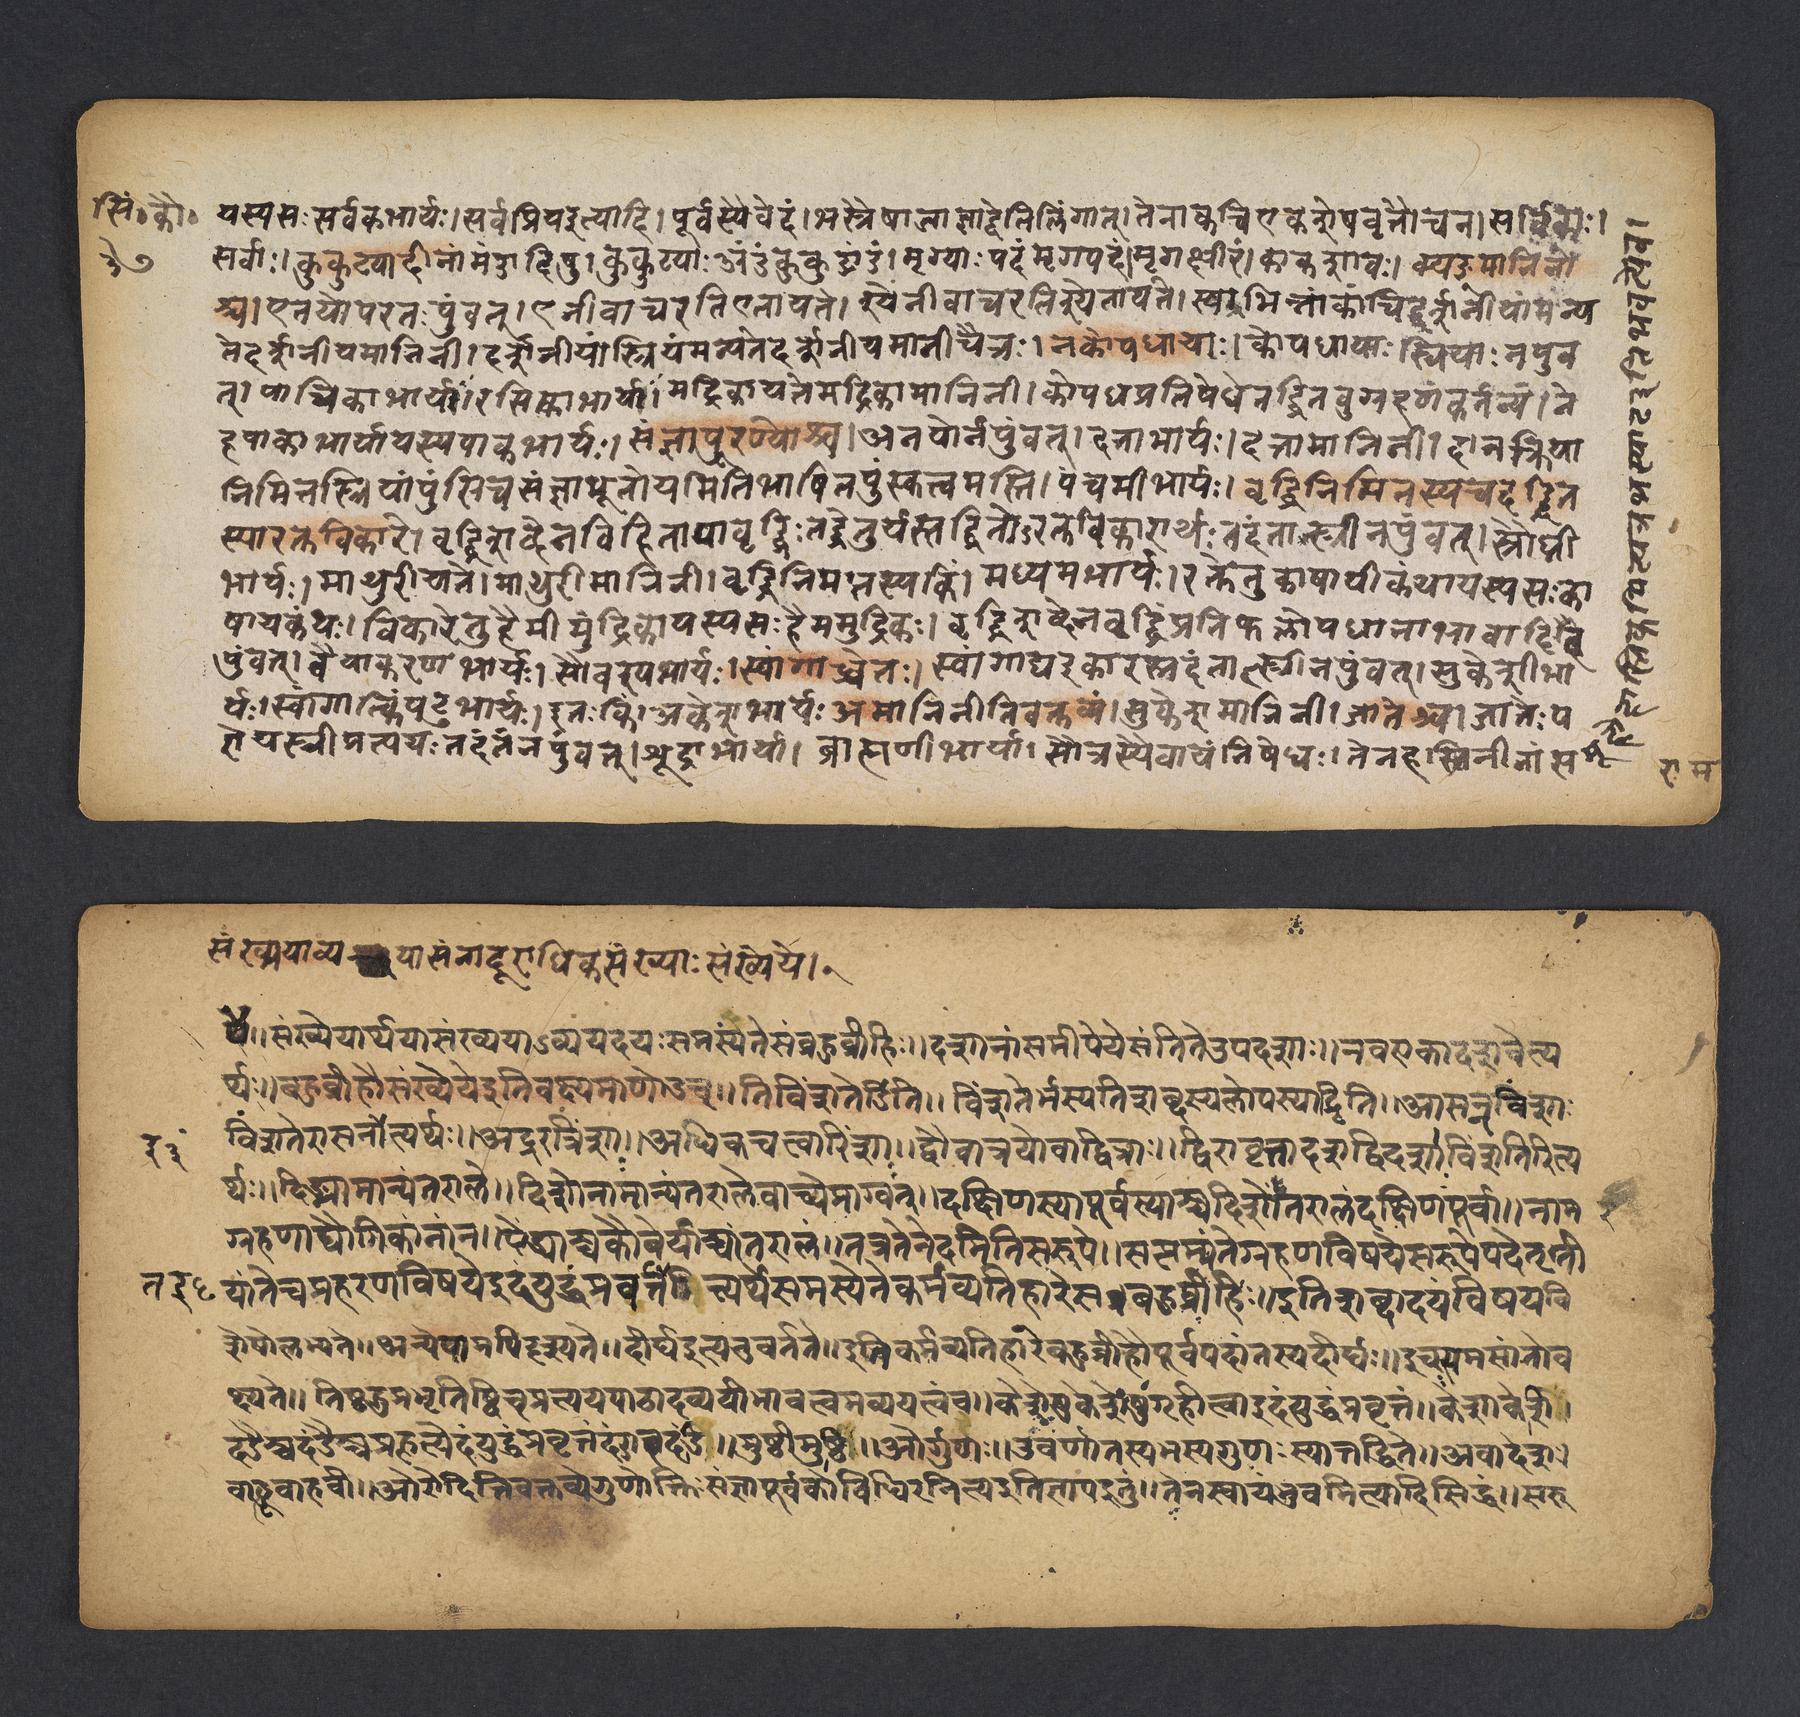 सिं॰ कौ॰
३७
यस्यसः सर्वकभार्यः। सर्वप्रियइत्यादि। पूर्वस्यैवेदं। भस्त्रैषाजाज्ञाद्वेतिलिंगात्। तेनाकचिएकशेषवृत्तौचन। सर्विकाः।
सर्वाः। कुक्कुट्यादीनामंडादिषु। कुक्कुट्याः अंडंकुक्कुटांडं। मृग्याः पदंमृगपदं। मृगक्षीरं। काकशावः। क्यङ्मानिनो
श्च। एतयोःपरतःपुंवत्। एनीवाचरतिएतायते। श्येनीवाचरतिश्येतायते। स्वभिन्नांकांचिद्दर्शनीयांमन्य
तेदर्शनीयमानिनी। दर्शनीयांस्त्रियंमन्यतेदर्शनीयमानीचैत्रः। नकोपधायाः। कोपधायाः स्त्रियाः नपुंव
त्। पाचिकाभार्यः। रसिकाभार्यः। मद्रिकायतेमद्रिकामानिनी। कोपधप्रतिषेधेतद्धितवुग्रहणंकर्तव्यं। ने
हपाकाभार्यायस्यपाकभार्यः। संज्ञापूरण्योश्च। अनयोर्नपुंवत्। दत्ताभार्यः। दत्तामानिनी। दानक्रिया
निमित्तस्त्रियांपुंसिचसंज्ञाभूतोयमितिभाषितपुंस्कत्वमस्ति। पंचमीभार्यः। वृद्धिनिमित्तस्यचतद्धित
स्यारक्तविकारे। वृद्धिशब्देनविहितायावृद्धिःतद्धेतुर्यस्तद्धितोऽरक्तविकारार्थःतदंतास्त्रीनपुंवत्। स्रौघ्नी
भार्यः। माथुरीयते। माथुरीमानिनी। वृद्धिनिमित्तस्यकिं। मध्यमभार्यः। रक्तेतुकाषायीकंथायस्यसःका
षायकंथः। विकारेतुहैमीमुद्रिकायस्यसःहैममुद्रिकः। वृद्धिशब्देनवृद्धिंप्रतिफलोपधानाभावादिहै
पुंवत्। वैयाकरणभार्यः। सौवश्वभार्यः। स्वांगाच्चेतः। स्वांगाद्यईकारस्तदंतास्त्रीनपुंवत्। सुकेशीभा
र्यः। स्वांगात्किंपटुभार्यः। इतःकिं। अकेशभार्यः अमानिनीतिवक्तव्यं। सुकेशमानिनी। जातेश्च। जातेःप
रोयस्त्रीप्रत्ययःतदंतंनपुंवत्। शूद्राभार्या। ब्राह्मणीभार्या। सौत्रस्यैवायंनिषेधः। तेनहस्तिनीनांस
राम
संख्ययाव्ययासंनादूराधिकसंख्याःसंख्येये।
र्थे॥संख्येयार्थयासंख्ययाऽव्ययदयःसमस्यंतेसंबहुव्रीहिः॥दशानांसमीपेयेसंतितेउपदशाः॥नवएकादशवेत्य
र्थः॥बहुव्रीहौसंख्येयेइतिवक्ष्यमाणोडच्॥तिविंशतेर्डिति॥विंशतेर्भस्यतिशब्दस्यलोपस्याड्डिति॥आसन्नविंशाः
विंशतेरासन्नाइत्यर्थः॥अदूरत्रिंशाः॥अधिकचत्वारिंशाः॥द्वौवात्रयोवाद्वित्राः॥द्विरावृत्तादशद्विदशाःविंशतिरित्य
र्थः॥दिङ्नामान्यंतराले॥दिशोनामान्यंतरालेवाच्येप्राग्वत्॥दक्षिणस्याःपूर्वस्याश्चदिशोंतरालंदक्षिणपूर्वा॥नाम
ग्रहणाद्यौगिकानांन॥ऐंद्र्याश्चकौबेर्याश्चांतरालं॥तत्रतेनेदमितिसरूपे॥सप्तम्यंतेग्रहणविषयेसरूपेपदेतृती
यांतेचप्रहरणविषयेइदंयुद्धंप्रवृत्तमित्यर्थेसमस्येतेकर्मव्यतिहारेसबहुव्रीहिः॥इतिशब्दादयंविषयवि
शेषोलभ्यते॥अन्येषामपिदृश्यते॥दीर्घइत्यनुवर्तते॥इतिकर्मव्यतिहारेबहुव्रीहौपूर्वपदांतस्यदीर्घः॥इच्समासांतोव
क्ष्यते॥तिष्ठद्गुप्रभृतिष्विच्प्रत्ययपाठादव्ययीभावत्वमव्ययत्वंच॥केशेषुकेशेषुगृहीत्वाइदंयुद्धंप्रवृत्तं॥केशाकेशि।
दंडैश्चदंडैश्चप्रहृत्येदंयुद्धंप्रवृत्तंदंडादंडि॥मुष्टीमुष्टि॥ओर्गुणः॥उवर्णांतस्यभस्यगुणःस्यात्तद्धिते॥अवादेशः
बाहूबाहवी॥ओरोदितिवक्तव्येगुणोक्तिःसंज्ञापूर्वकोविधिरनित्यइतिज्ञापइतुं॥तेनस्वायंभुवमित्यादिसिद्धं॥सह